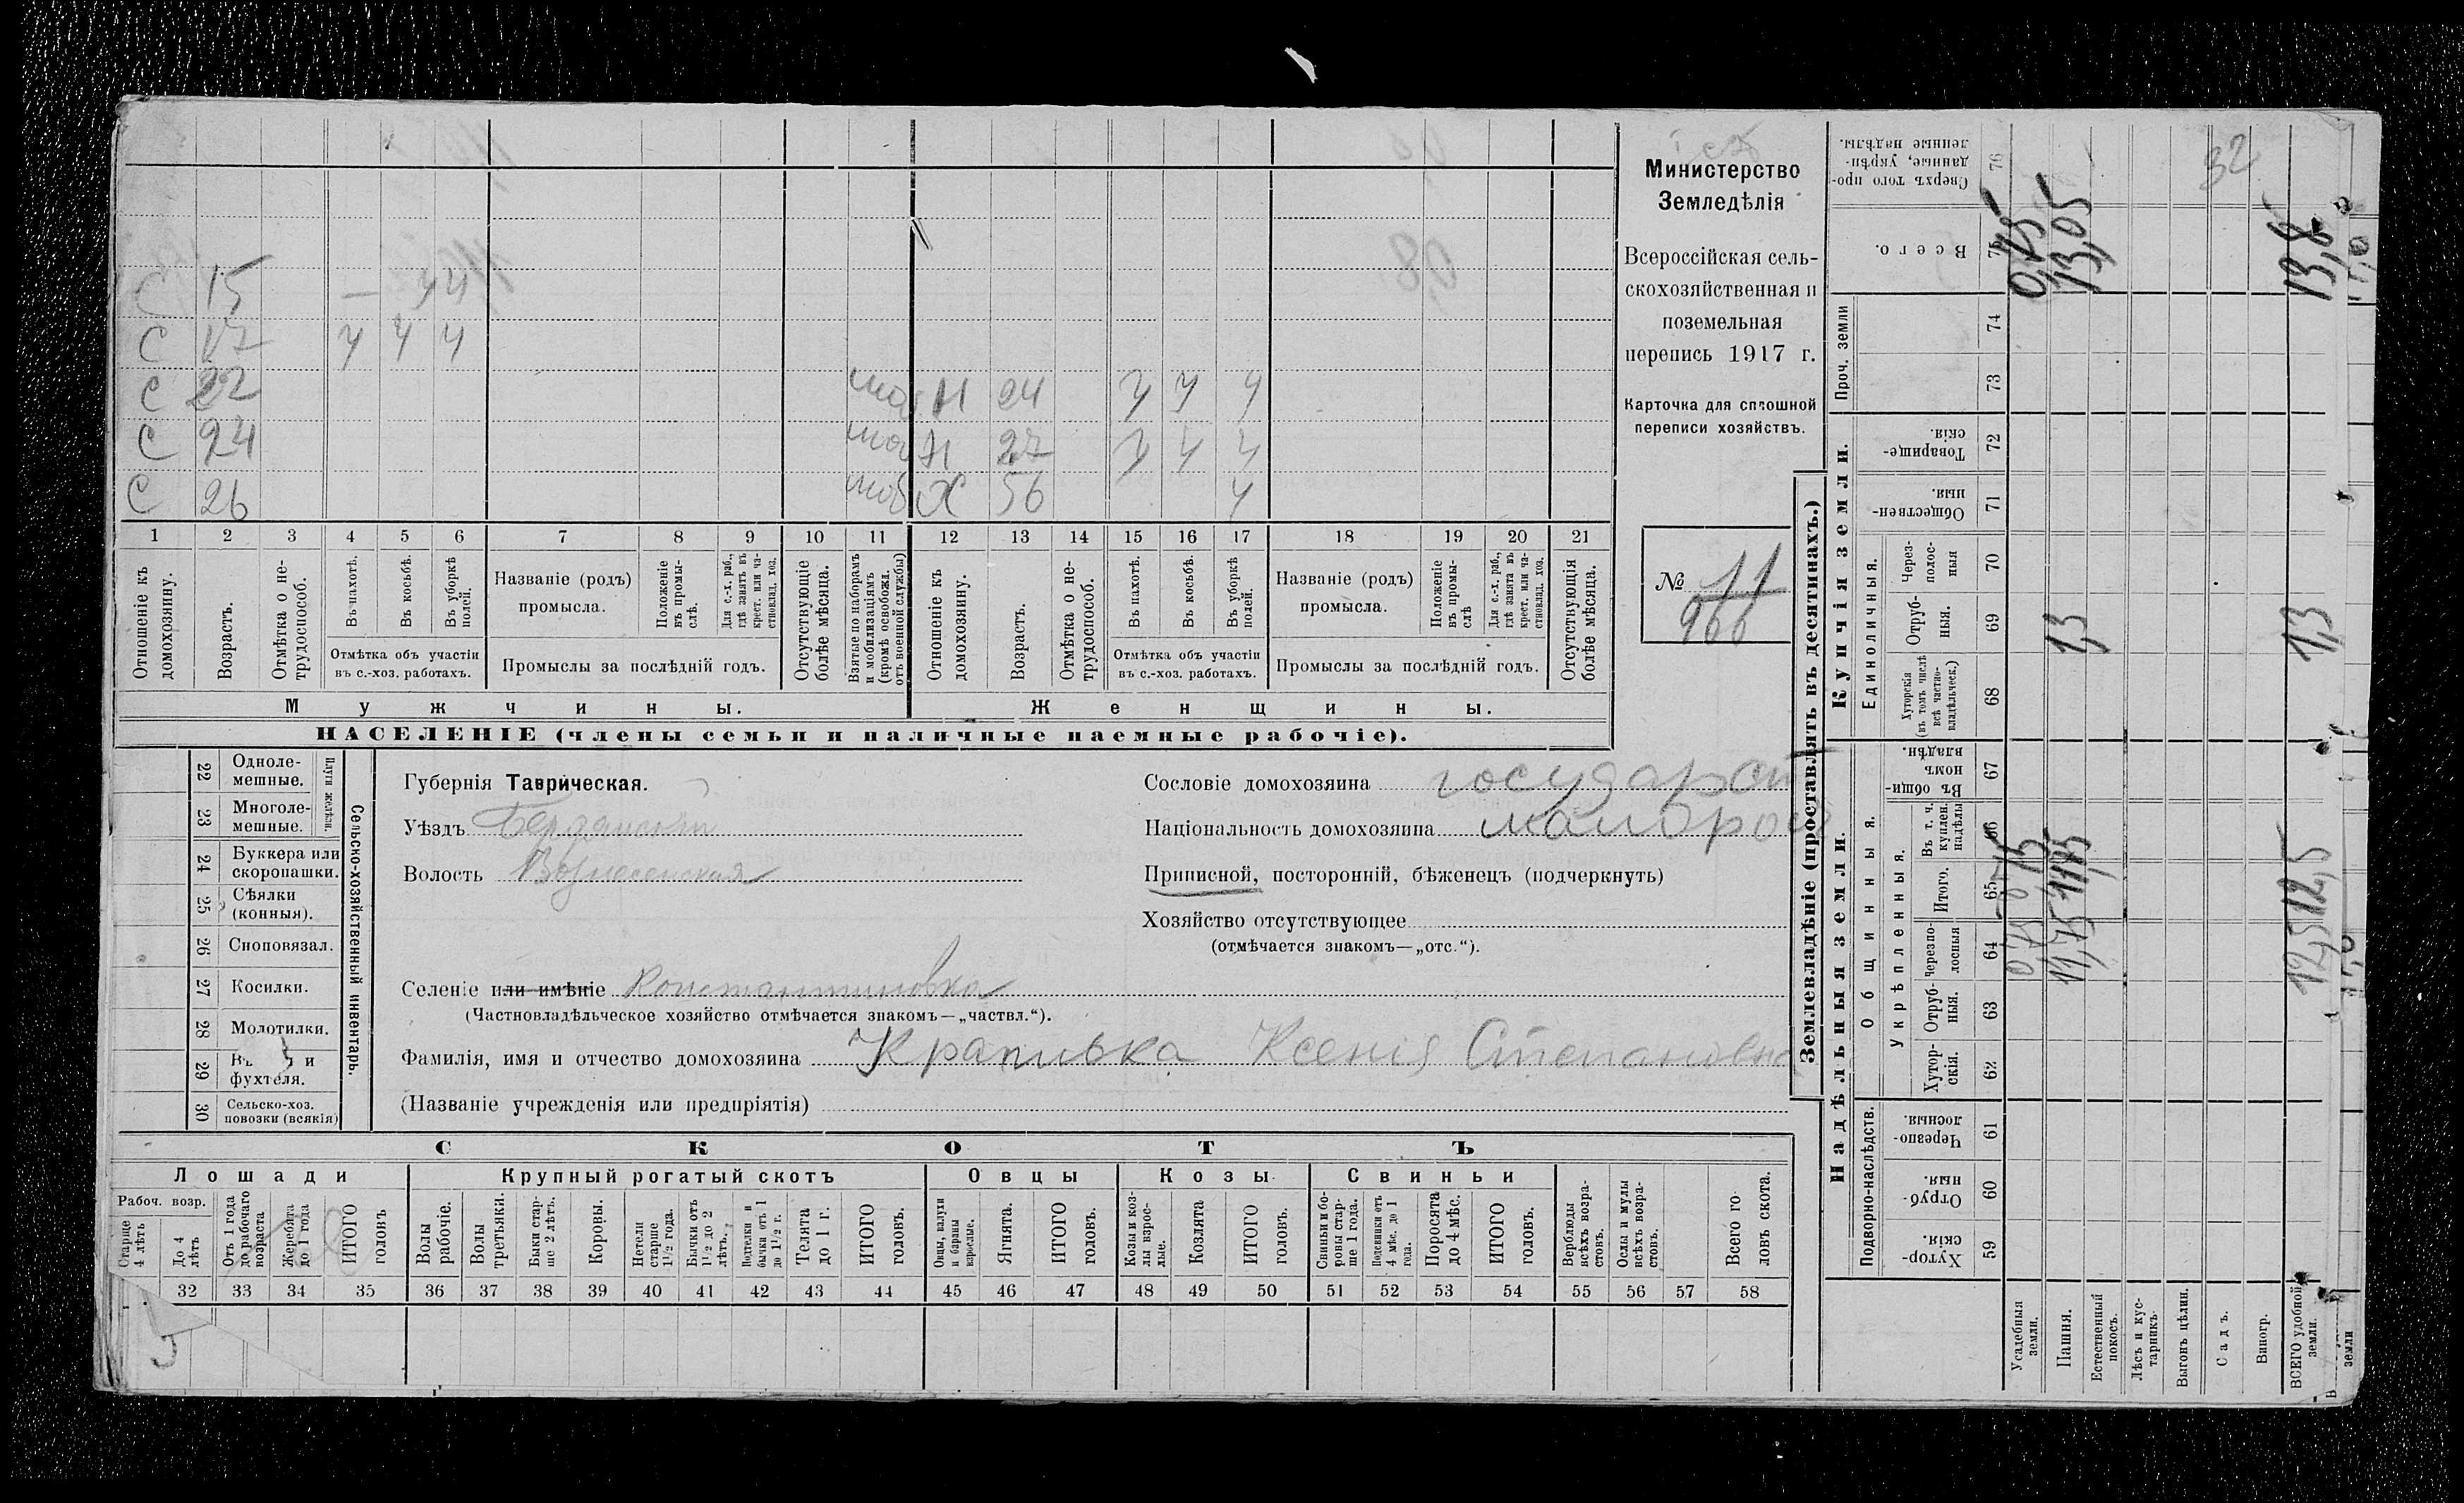 С 15 — ч ч
С 17 ч ч ч
С 22 моб Н 24 ч ч ч
С 24 моб Н 27 ч ч ч
С 26 моб Х 56 ч
1 2 3 4 5 6 7 8 9 10 11 12 13 14 15 16 17 18 19 20 21
Отношеніе къ домохозяину.
Возрастъ.
Отмѣтка о не-трудоспособ.
Въ пахотѣ.
Въ косьбѣ.
Въ уборкѣ полей.
Отмѣтка объ участіи
въ с.-хоз. работахъ.
Названіе (родъ)
промысла.
Положеніе въ промы-слѣ.
Для с.-х. раб., гдѣ занятъ въ крест. или ча-стновлад. хоз.
Промыслы за послѣдній годъ.
Отсутствующіе болѣе мѣсяца.
Взятые по наборамъ и мобилизаціямъ (кромѣ освобожд. отъ военной службы)
Отношеніе къ домохозяину.
Возрастъ.
Отмѣтка о не-трудоспособ.
Въ пахотѣ.
Въ косьбѣ.
Въ уборкѣ полей.
Отмѣтка объ участіи
въ с.-хоз. работахъ.
Названіе (родъ)
промысла.
Положеніе въ промы-слѣ
Для с.-х. раб., гдѣ занята въ крест. или ча-стновлад. хоз.
Промыслы за послѣдній годъ.
Отсутствующія болѣе мѣсяца.
Мужчины.
Женщины.
НАСЕЛЕНІЕ (члены семьи и наличные наемные рабочіе).
Министерство
Земледѣлія
Всероссійская сель-
скохозяйственная и
поземельная
перепись 1917 г.
Карточка для сплошной
переписи хозяйствъ.
№ 11
966
22 Одноле-
мешные.
23 Многоле-
мешные.
Плуги желѣзн.
24 Буккера или
скоропашки.
25 Сѣялки
(конныя).
26 Сноповязал.
27 Косилки.
28 Молотилки.
29 и
фухтеля.
30 Сельско-хоз.
повозки (всякія)
Сельско-хозяйственный инвентарь.
Губернія Таврическая.
Уѣздъ Бердянскій
Волость Вознесенская
Селеніе или имѣніе Константиновка
(Частновладѣльческое хозяйство отмѣчается знакомъ—„частвл.“).
Фамилія, имя и отчество домохозяина Крапивка Ксенія Степановна
(Названіе учрежденія или предпріятія)
Сословіе домохозяина государст
Національность домохозяина малорос
Приписной, посторонній, бѣженецъ (подчеркнуть)
Хозяйство отсутствующее
(отмѣчается знакомъ—„отс.“).
СКОТЪ
Лошади
Крупный рогатый скотъ
Овцы
Козы
Свиньи
Рабоч. возр.
Старше 4 лѣтъ
До 4 лѣтъ
Отъ 1 года до рабочаго возраста
Жеребята до 1 года
ИТОГО головъ
Волы рабочіе.
Волы третьяки.
Быки стар-ше 2 лѣтъ.
Коровы.
Нетели старше 1 1/2 года.
Бычки отъ 1 1/2 до 2 лѣтъ.
Подтелки и бычки отъ 1 до 1 1/2 г.
Телята до 1 г.
ИТОГО головъ.
Овцы, валухи и бараны взрослые.
Ягнята.
ИТОГО головъ.
Козы и коз-лы взрос-лые.
Козлята
ИТОГО головъ.
Свиньи и бо-ровы стар-ше 1 года.
Подсвинки отъ 4 мѣс. до 1 года.
Поросята до 4 мѣс.
ИТОГО головъ.
Верблюды всѣхъ возра-стовъ.
Ослы и мулы всѣхъ возра-стовъ.
Всего го-ловъ скота.
32 33 34 35 36 37 38 39 40 41 42 43 44 45 46 47 48 49 50 51 52 53 54 55 56 57 58
Землевладѣніе (проставлять въ десятинахъ.)
Надѣльныя земли.
Купчія земли.
Проч. земли
Подворно-наслѣдств.
Общинныя.
Укрѣпленныя.
Единоличныя.
Сверхъ того про-данные, укрѣп-ленные надѣлы. 76
Всего. 75 0,75 13,05 13,8
74
73
Товарище-скія. 72
Обществен-ныя. 71
Через-полос-ныя 70
Отруб-ныя. 69 1,3 1,3
Хуторскія (въ томъ числѣ всѣ частно-владѣльческ.) 68
Въ общи-номъ владѣн. 67
Въ т. ч. куплен. надѣлы 66
Итого. 65 0,75 11,75 12,5
Черезпо-лосныя 64 0,75 11,75 12,5
Отруб-ныя. 63
Хутор-скія. 62
Черезпо-лосныя 61
Отруб-ныя. 60
Хутор-скія. 59
Усадебныя земли.
Пашня.
Естественный покосъ.
Лѣсъ и кус-тарникъ
Выгонъ цѣлин.
Садъ.
Виногр.
ВСЕГО удобной земли.
земли
32